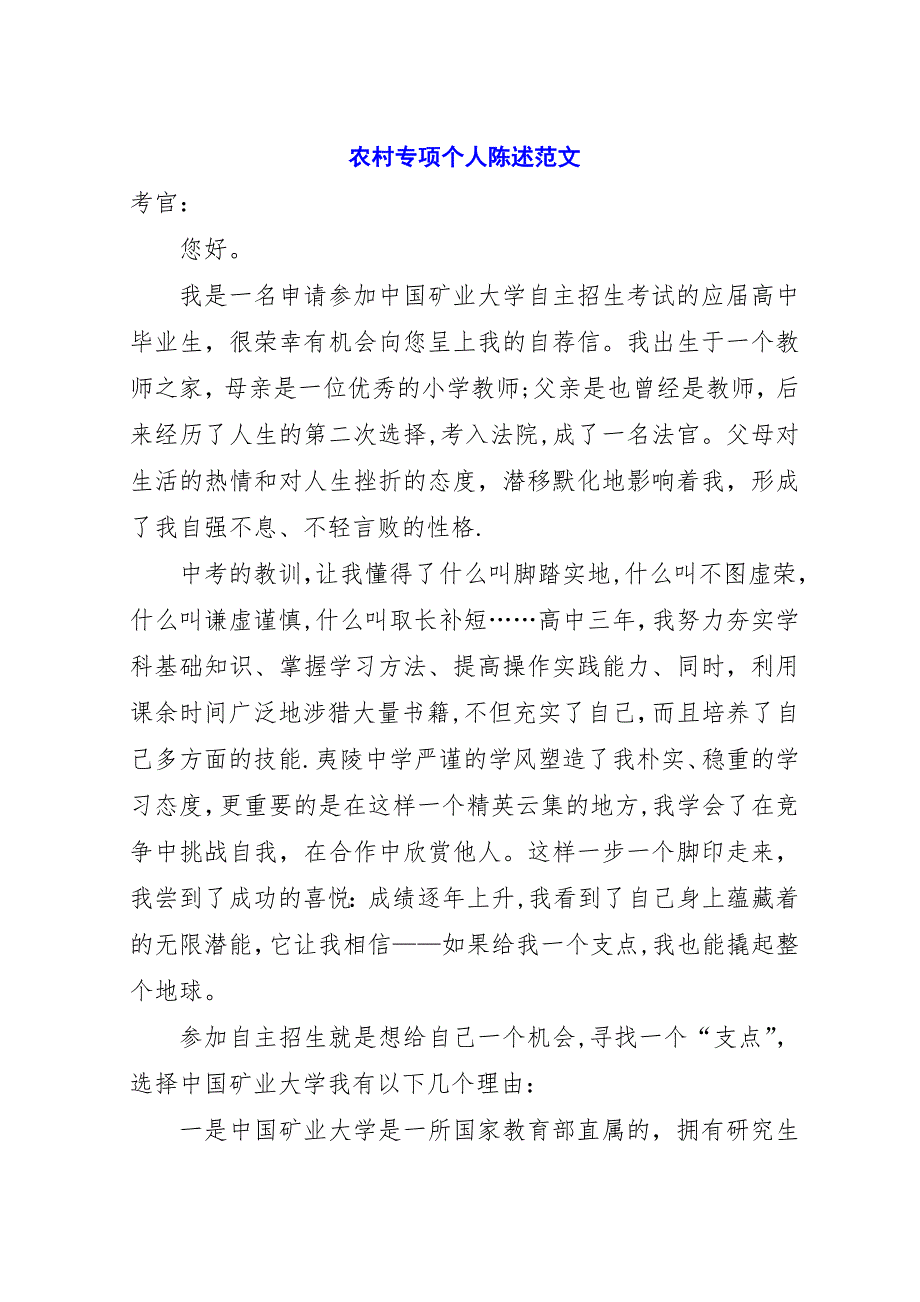 农村专项个人陈述范文
考官：
您好。
我是一名申请参加中国矿业大学自主招生考试的应届高中
毕业生，很荣幸有机会向您呈上我的自荐信。我出生于一个教
师之家，母亲是一位优秀的小学教师;父亲是也曾经是教师，后
来经历了人生的第二次选择,考入法院,成了一名法官。父母对
生活的热情和对人生挫折的态度，潜移默化地影响着我，形成
了我自强不息、不轻言败的性格.
中考的教训,让我懂得了什么叫脚踏实地,什么叫不图虚荣,
什么叫谦虚谨慎,什么叫取长补短……高中三年，我努力夯实学
科基础知识、掌握学习方法、提高操作实践能力、同时，利用
课余时间广泛地涉猎大量书籍,不但充实了自己,而且培养了自
己多方面的技能.夷陵中学严谨的学风塑造了我朴实、稳重的学
习态度，更重要的是在这样一个精英云集的地方,我学会了在竞
争中挑战自我，在合作中欣赏他人。这样一步一个脚印走来，
我尝到了成功的喜悦：成绩逐年上升,我看到了自己身上蕴藏着
的无限潜能，它让我相信——如果给我一个支点,我也能撬起整
个地球。
参加自主招生就是想给自己一个机会,寻找一个“支点”，
选择中国矿业大学我有以下几个理由：
一是中国矿业大学是一所国家教育部直属的，拥有研究生